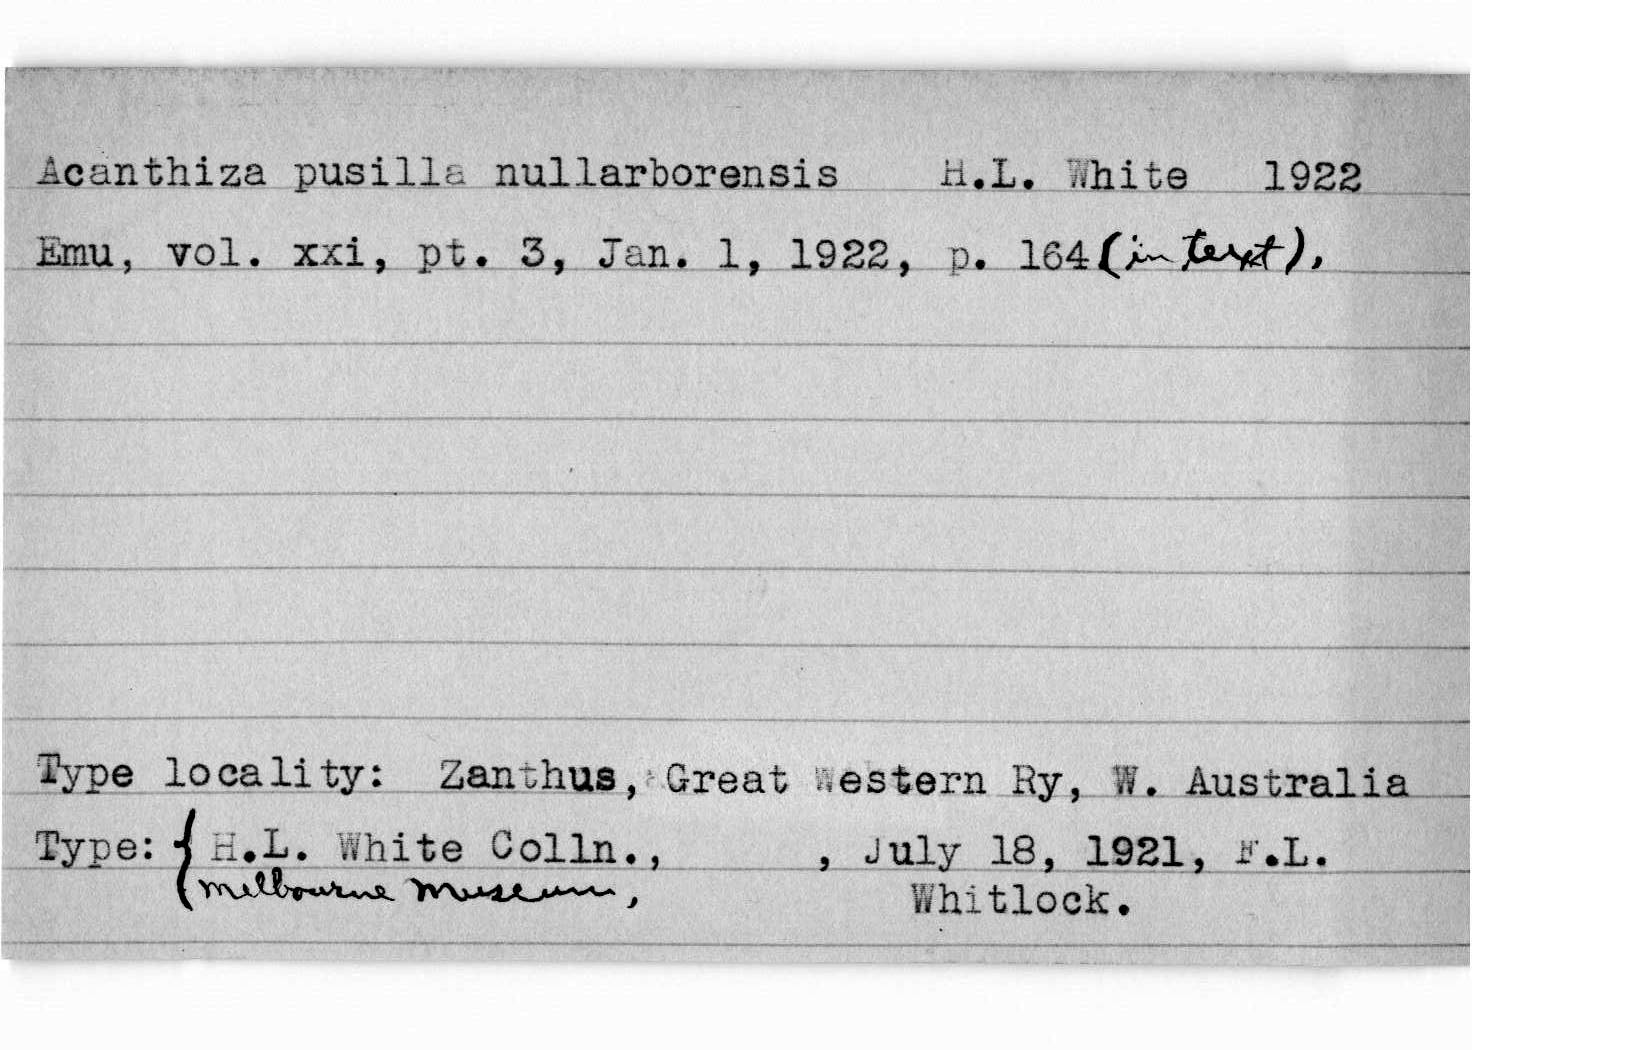 Acanthiza pusilla nullarborensis H.L. White 1922
Emu, vol. xxi, pt. 3, Jan. 1, 1922, p. 164 (in text).
Type locality: Zanthus, Great Western Ry, W. Australia
Type: { H.L. White Colln., , July 18, 1921, F.L.
Melbourne Museum, Whitlock.